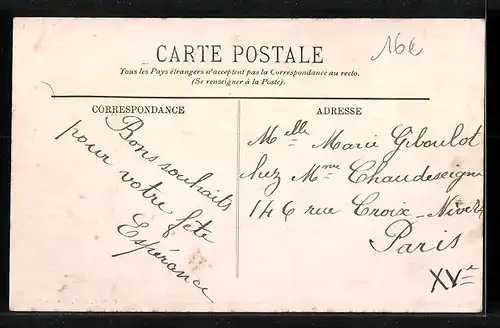 16€
CARTE POSTALE
Tous les Pays étrangers n'acceptent pas la Correspondance au recto.
(Se renseigner à la Poste).
CORRESPONDANCE
Bons souhaits
pour votre fête
Espérance
ADRESSE
Melle Marie Giboulot
chez Mme Chaudeseigne
146 rue Croix-Nivert
Paris
XVe